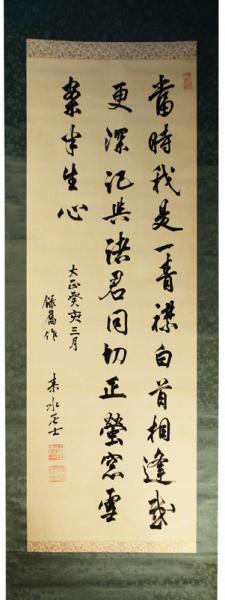 當時我是一青襟白首相逢感
更深記與諸君同切正螢窓雪
案半生心
大正癸亥三月
錄舊作
素水居士